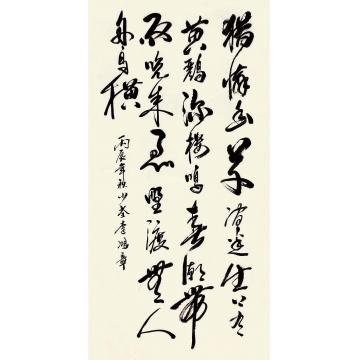 獨憐幽草澗邊生上有
黄鸝深樹鳴春潮帶
雨晚来急野渡無人
舟自横
丙辰年秋少荃李鴻章